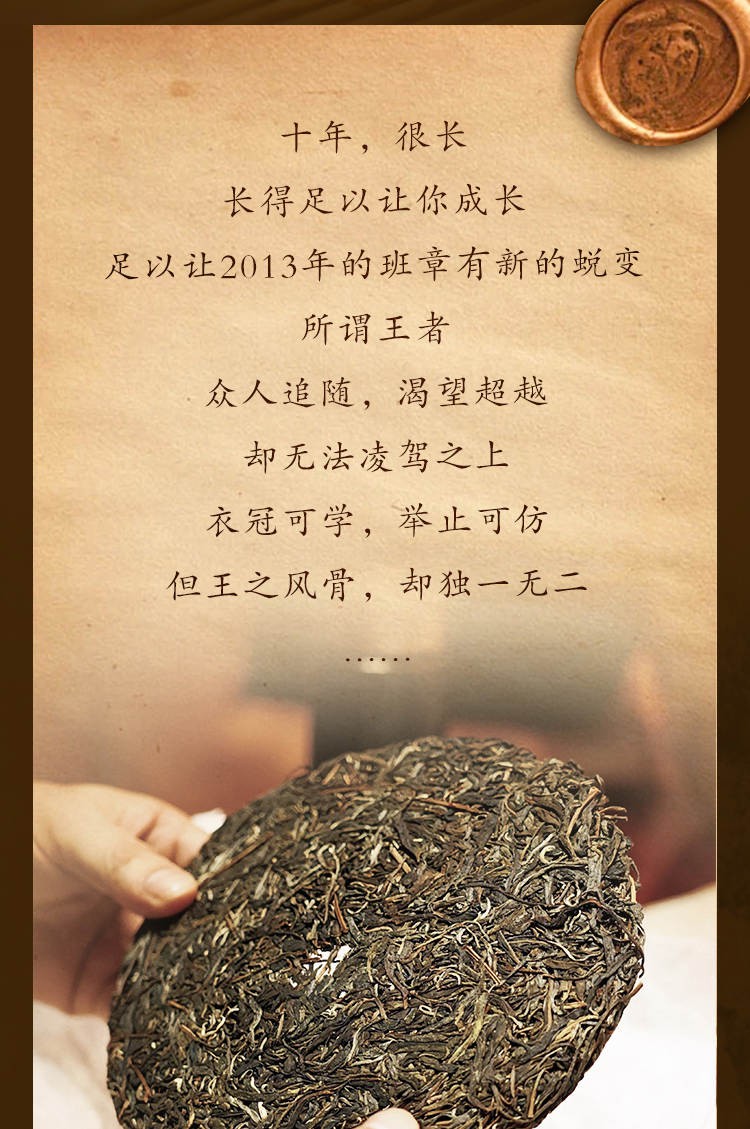 十年，很长
长得足以让你成长
足以让2013年的班章有新的蜕变
所谓王者
众人追随，渴望超越
却无法凌驾之上
衣冠可学，举止可仿
但王之风骨，却独一无二
······